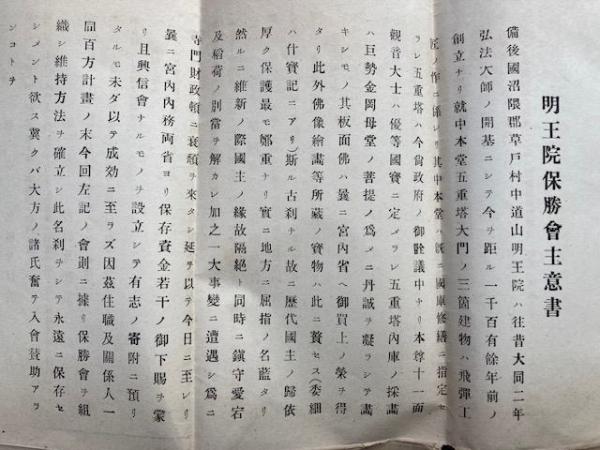 明王院保勝會主意書
備後國沼隈郡草戸村中道山明王院ハ往昔大同二年
弘法大師ノ開基ニシテ今ヲ距ル一千百有餘年前ノ
創立ナリ就中本堂五重塔大門ノ三箇建物ハ飛彈工
匠ノ作ニ係レリ其中本堂ハ既ニ國庫修繕ニ指定セ
ラレ五重塔ハ今尚政府ノ御詮議中ナリ本尊十一面
觀音大士ハ優等國寶ニ定メラレ五重塔内庫ノ採畫
ハ巨勢金岡母堂ノ菩提ノ爲メニ丹誠ヲ凝ラシテ畫
キシモノ其板面佛ハ曩ニ宮内省ヘ御買上ノ榮ヲ得
タリ此外佛像繪畫等所藏ノ寳物ハ此ニ贅セス(委細
ハ什寳記ニアリ)斯ル古刹ナル故ニ歴代國主ノ歸依
厚ク保護最モ鄭重ナリ實ニ地方ニ屈指ノ名藍タリ
然ルニ維新ノ際國主ノ縁故隔絶ト同時ニ鎮守愛宕
及稲荷ノ別當ヲ解カレ加之一大事變ニ遭遇シ爲ニ
寺門財政頓ニ衰頽ヲ來タシ延テ以テ今日ニ至レリ
曩ニ宮内内務兩省ヨリ保存資金若干ノ御下賜ヲ蒙
リ且興信會ナルモノヲ設立シテ有志ノ寄附ニ預リ
タルモ未ダ以テ成効ニ至ラズ因茲住職及關係人一
同百方計畫ノ末今回左記ノ會則ニ據リ保勝會ヲ組
織シ維持方法ヲ確立シ此名刹ヲシテ永遠ニ保存セ
シメント欲ス冀クバ大方ノ諸氏奮テ入會賛助アラ
ンコトヲ